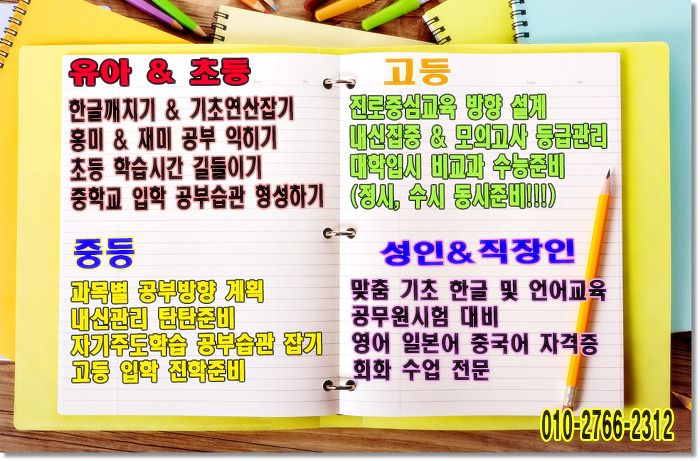 유아 & 초등
한글깨치기 & 기초연산잡기
흥미 & 재미 공부 익히기
초등 학습시간 길들이기
중학교 입학 공부습관 형성하기
중등
과목별 공부방향 계획
내신관리 탄탄준비
자기주도학습 공부습관 잡기
고등 입학 진학준비
고등
진로중심교육 방향 설계
내신집중 & 모의고사 등급관리
대학입시 비교과 수능준비
(정시, 수시 동시준비!!!!)
성인&직장인
맞춤 기초 한글 및 언어교육
공무원시험 대비
영어 일본어 중국어 자격증
회화 수업 전문
010-2766-2312